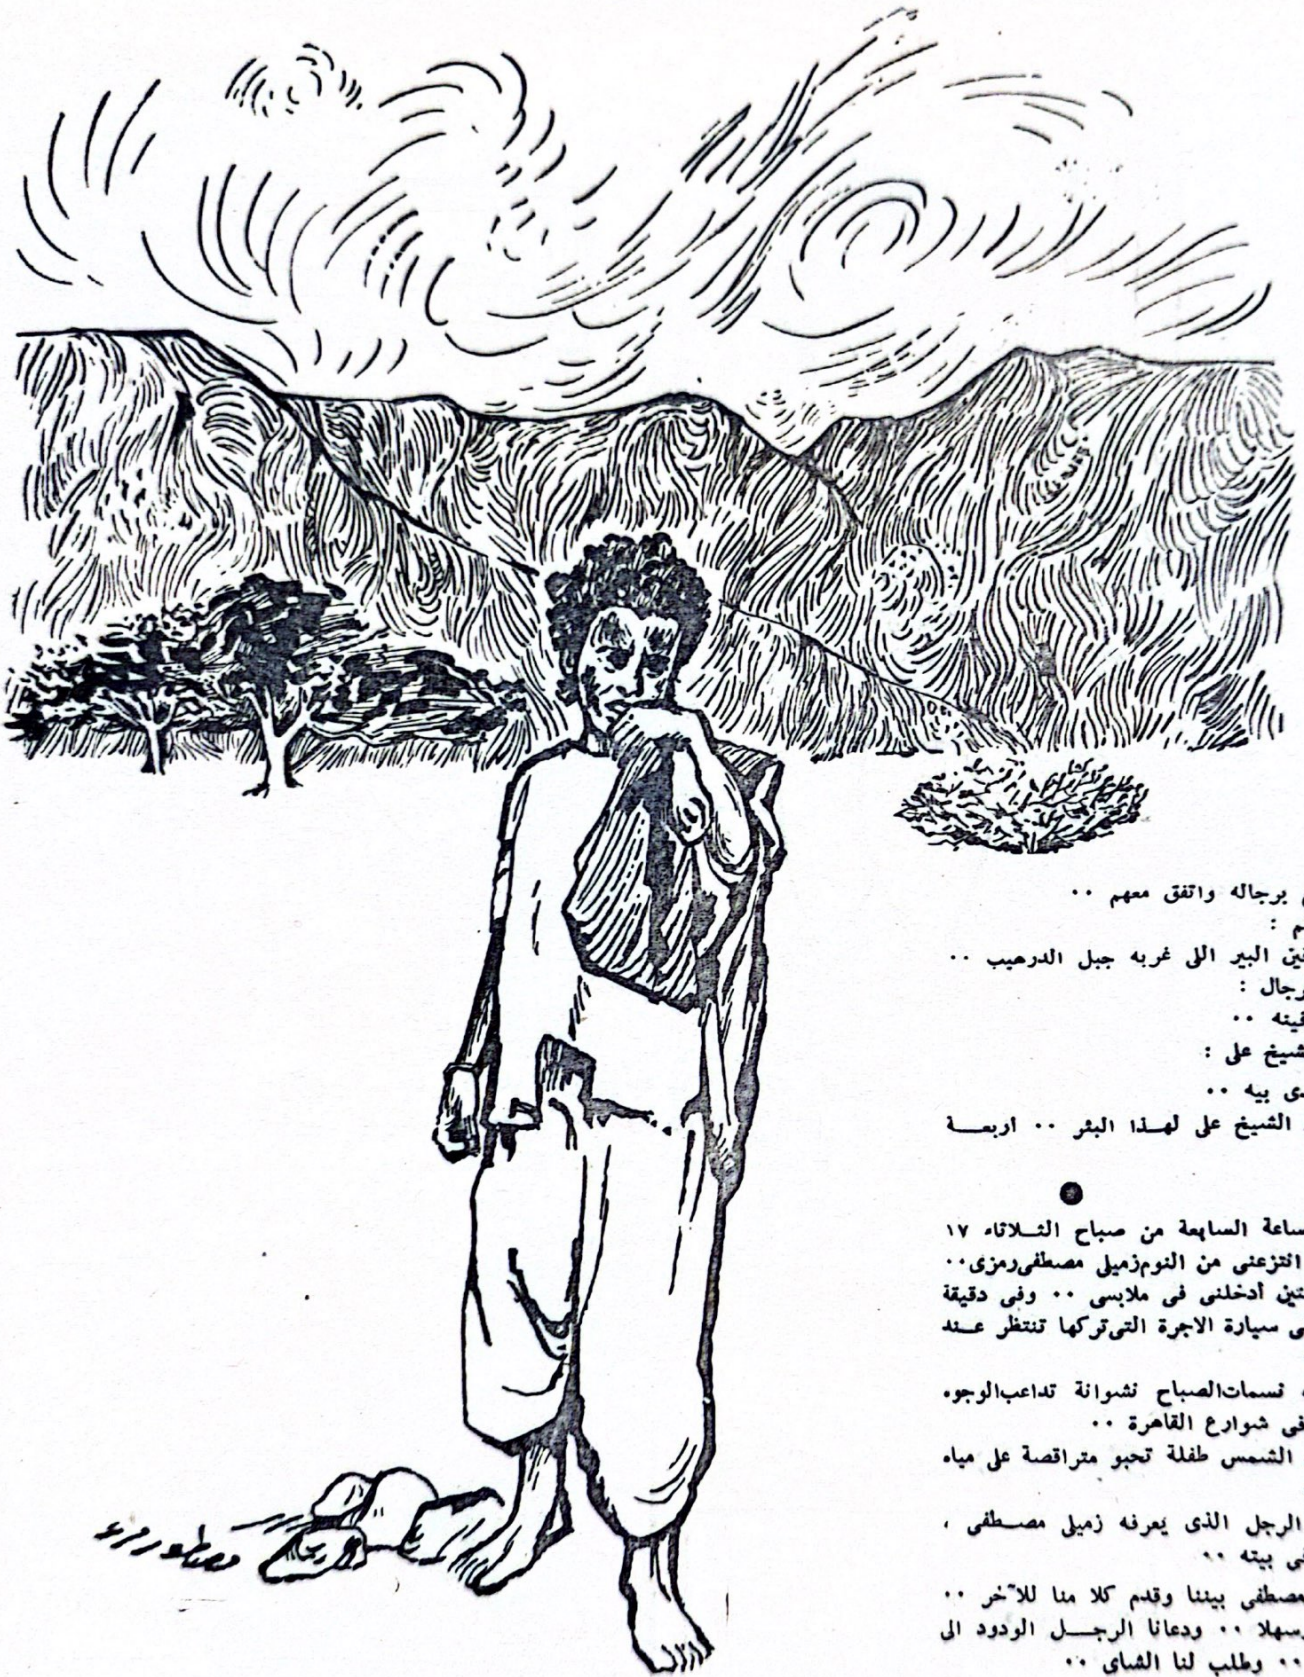 برجاله واتفق معهم ..
البير اللى غربه جبل الدرهيب ..
على :
بيه ..
الشيخ على لهـذا البئر .. اربعـــة
السابعة من صباح الثــلاثاء ١٧
انتزعنى من النوم زميلى مصطفى رمزى ..
أدخلنى فى ملابسى .. وفى دقيقة
سيارة الاجرة التى تركها تنتظر عــند
نسمات الصباح نشوانة تداعب الوجوه
شوارع القاهرة ..
الشمس طفلة تحبو متراقصة على مياه
الرجل الذى يعرفه زميلى مصــطفى ،
بيته ..
بيننا وقدم كلا منا للآخر ..
ودعانا الرجــل الودود الى
.. وطلب لنا الشاى ..